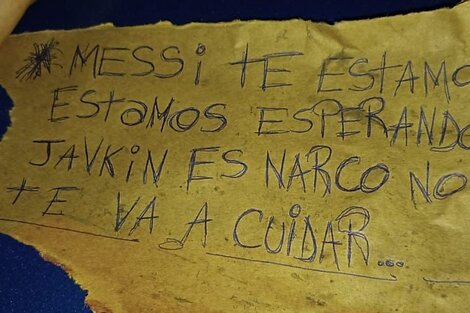 MESSI TE ESTAMO
ESTAMOS ESPERANDO
JAVKIN ES NARCO NO
TE VA A CUIDAR...